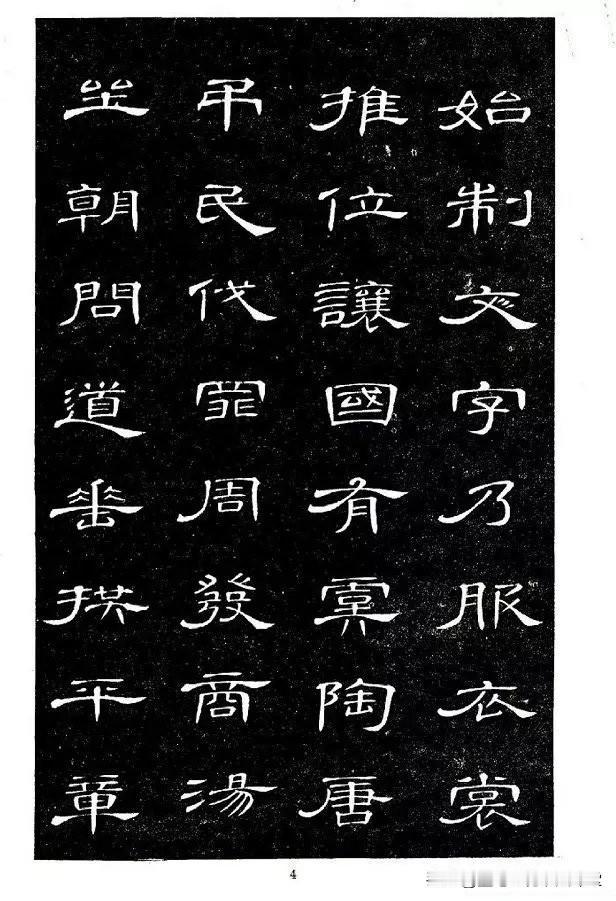 始制文字乃服衣裳
推位讓國有虞陶唐
弔民伐罪周發商湯
坐朝問道垂拱平章
4